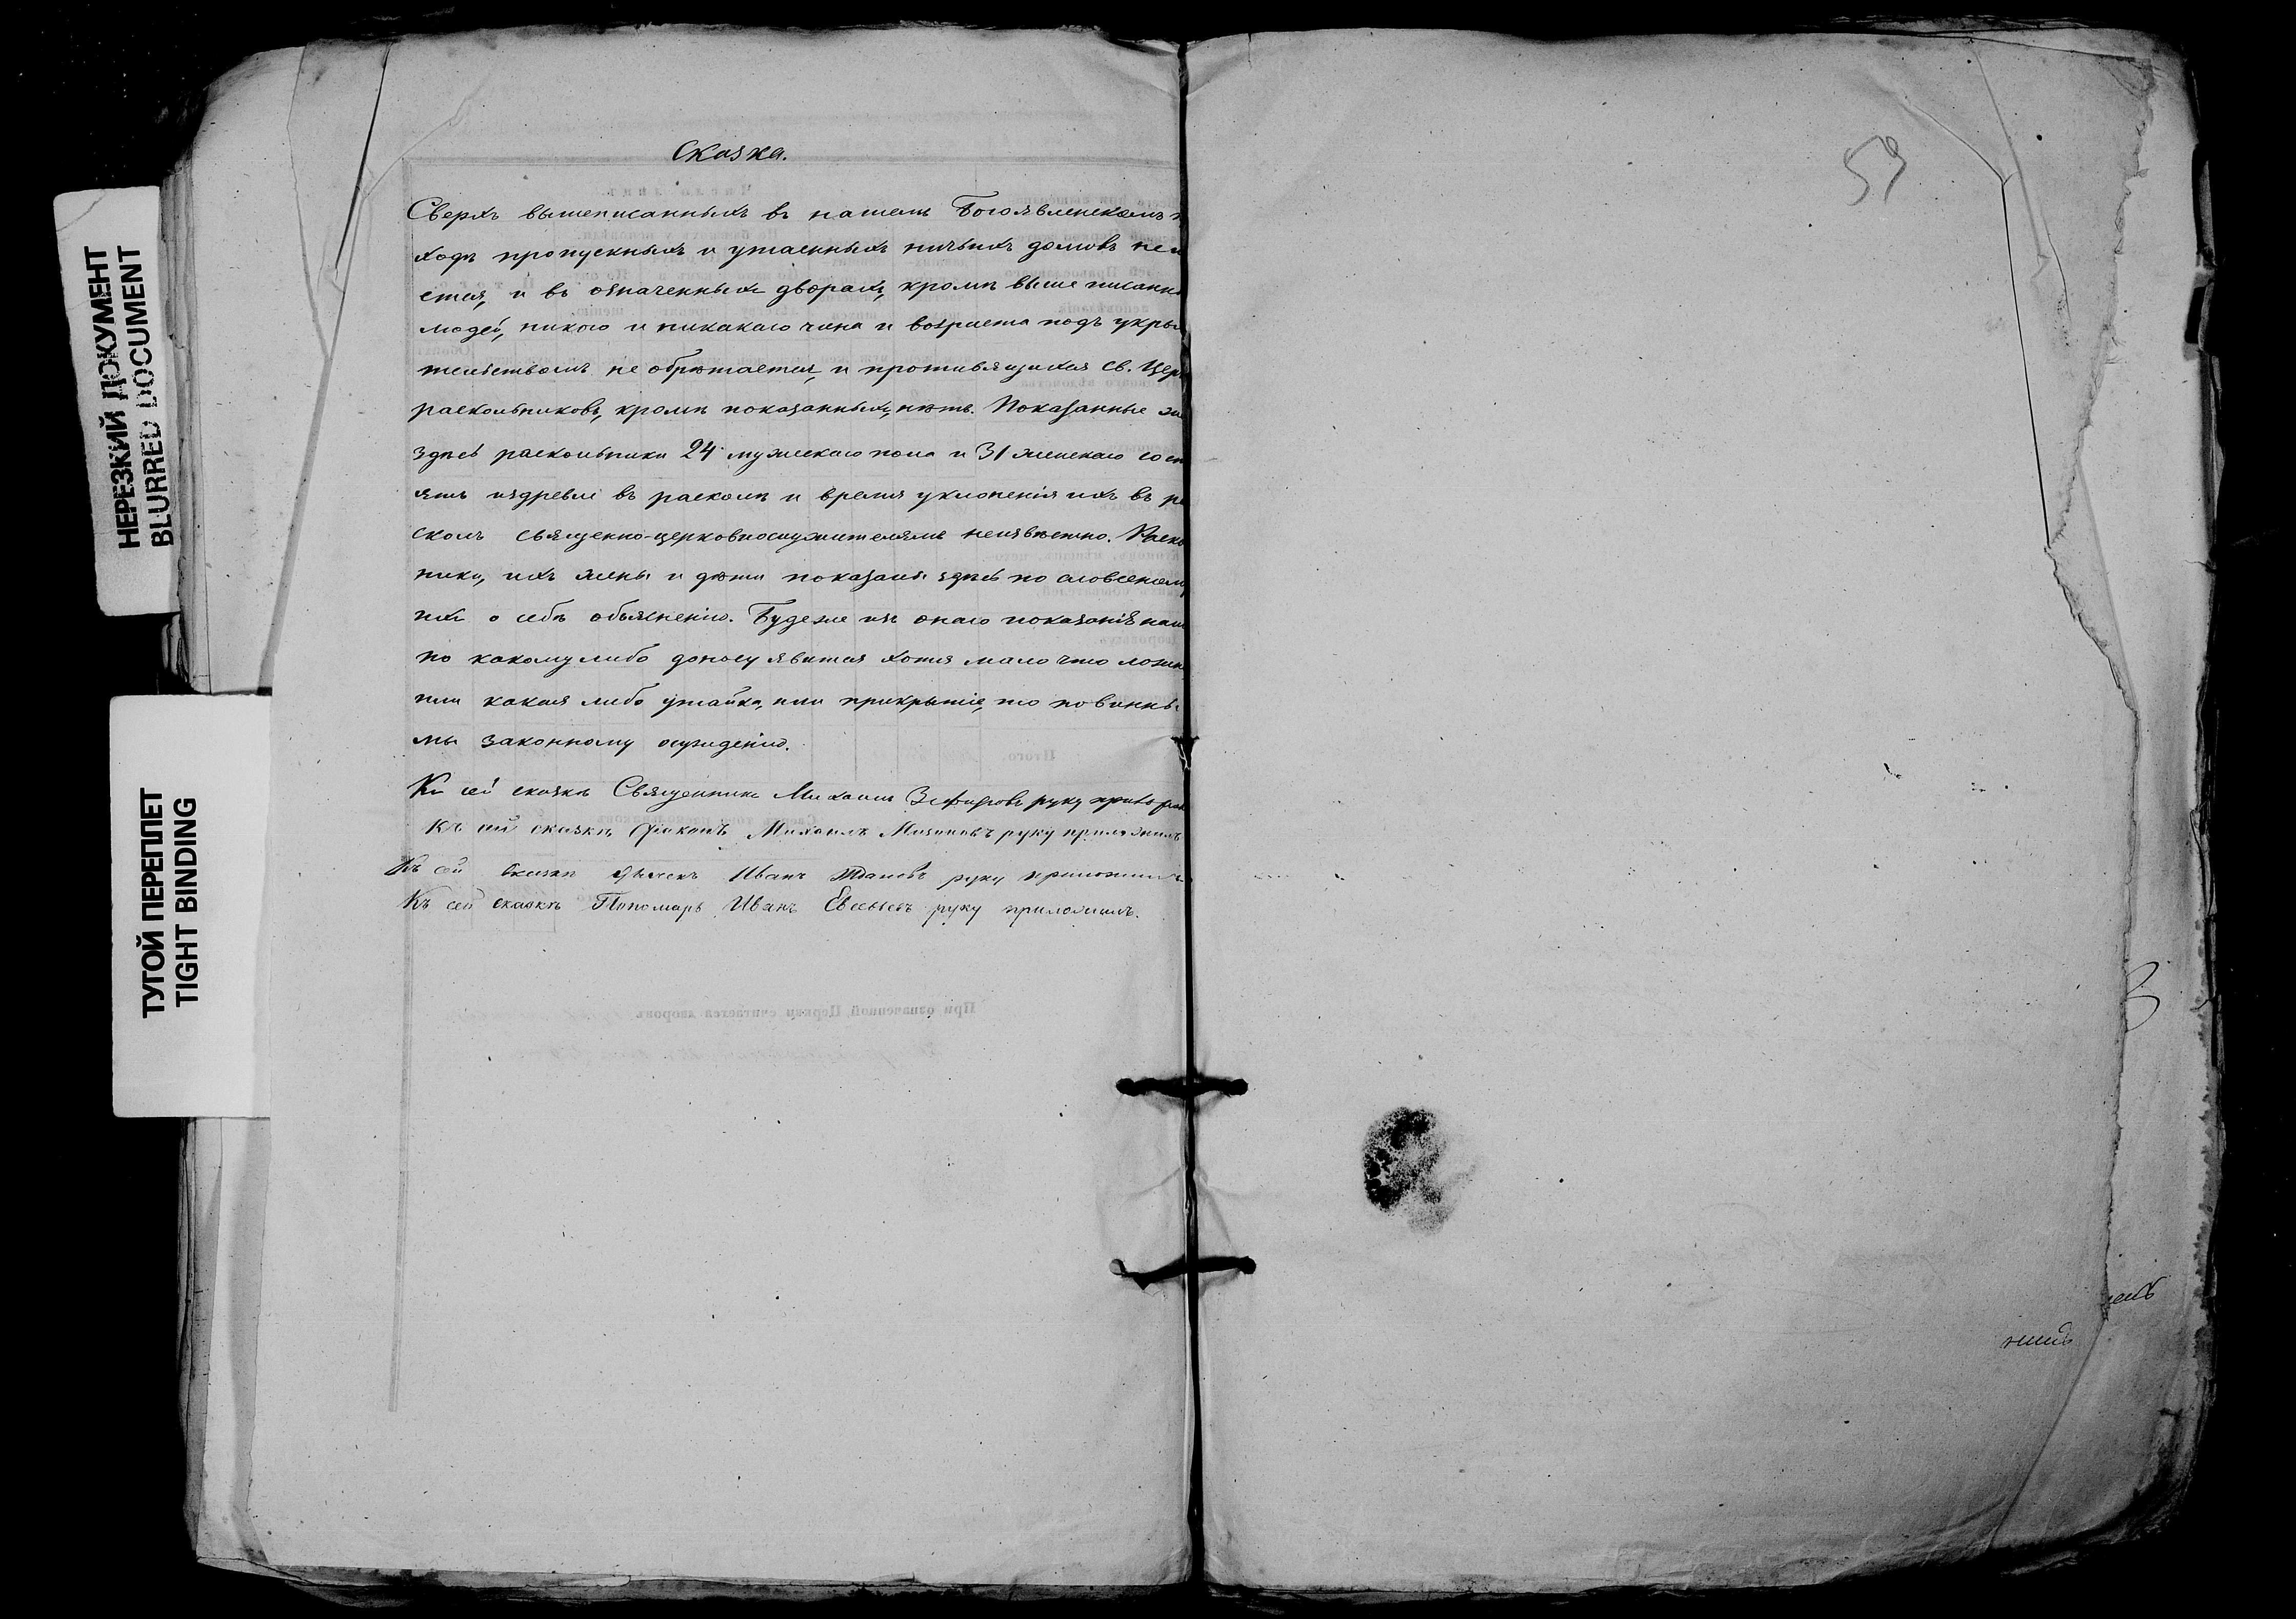 Сказка.
Сверхъ вышеписанныхъ въ нашемъ Богоявленскомъ п
ходѣ пропускныхъ и утаенныхъ ничьихъ домовъ неи
ется, и въ означенныхъ дворахъ, кромѣ выше писанн
людей, никого и никакого чина и возраста подъ укры
тельствомъ не обрѣтается, и противящихся св. Цер
раскольниковъ, кромѣ показанныхъ, нѣтъ. Показанные
здѣсь раскольники 24 мужескаго пола и 31 женскаго сост
ятъ издревле въ расколѣ и время уклоненія ихъ въ ра
сколъ священно-церковнослужителямъ неизвѣстно. Раско
ники, ихъ жены и дѣти показаны здѣсь по словесному
ихъ о себѣ объясненію. Буде же изъ онаго показанія наш
по какому либо доносу явится хотя мало что ложн
или какая либо утайка, или прикрытіе, то повинны
мы законному осужденію.
Къ сей сказкѣ Священникъ Михаилъ Зефировъ руку прило
Къ сей сказкѣ Діаконъ Михаилъ руку приложилъ
Къ сей сказкѣ Дьячекъ Иванъ руку приложилъ
Къ сей сказкѣ Пономарь Иванъ Евсевьевъ руку приложилъ.
Итого.
При означенной Церкви считается дворовъ
59
НЕРЕЗКИЙ ДОКУМЕНТ
BLURRED DOCUMENT
ТУГОЙ ПЕРЕПЛЕТ
TIGHT BINDING